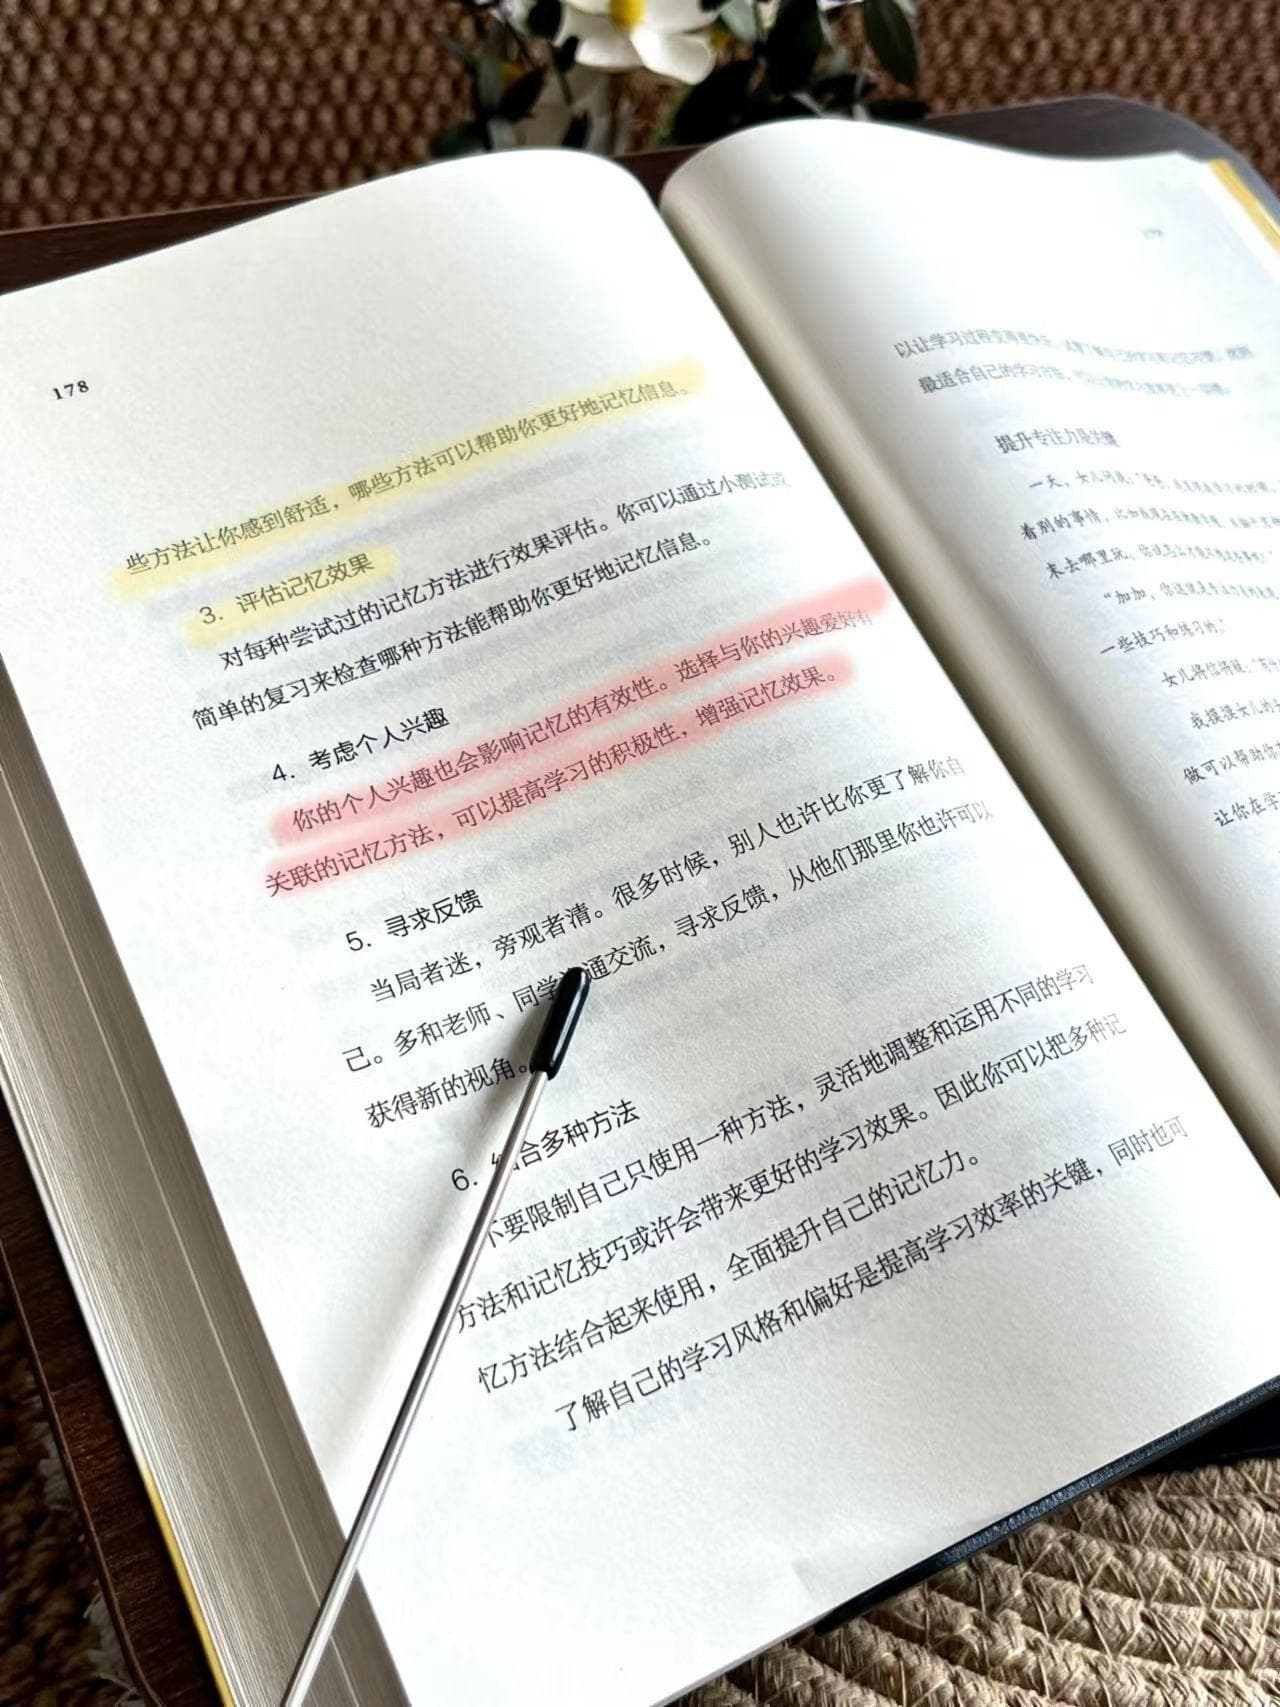 178
些方法让你感到舒适，哪些方法可以帮助你更好地记忆信息。
3. 评估记忆效果
对每种尝试过的记忆方法进行效果评估。你可以通过小测试或
简单的复习来检查哪种方法能帮助你更好地记忆信息。
4. 考虑个人兴趣
你的个人兴趣也会影响记忆的有效性。选择与你的兴趣爱好有
关联的记忆方法，可以提高学习的积极性，增强记忆效果。
5. 寻求反馈
当局者迷，旁观者清。很多时候，别人也许比你更了解你自
己。多和老师、同学通交流，寻求反馈，从他们那里你也许可以
获得新的视角。
6. 合多种方法
不要限制自己只使用一种方法，灵活地调整和运用不同的学习
方法和记忆技巧或许会带来更好的学习效果。因此你可以把多种记
忆方法结合起来使用，全面提升自己的记忆力。
了解自己的学习风格和偏好是提高学习效率的关键，同时也可
以让学习过程变得更
最适合自己的学习方法，
提升专注力是关键
一天，女儿问我：
看别的事情，比如
末去哪里玩，你说怎么
"加加，你这
一些技巧和练习的。"
女儿将信将疑：
我摸摸女儿的
做可以帮助你
让你在学